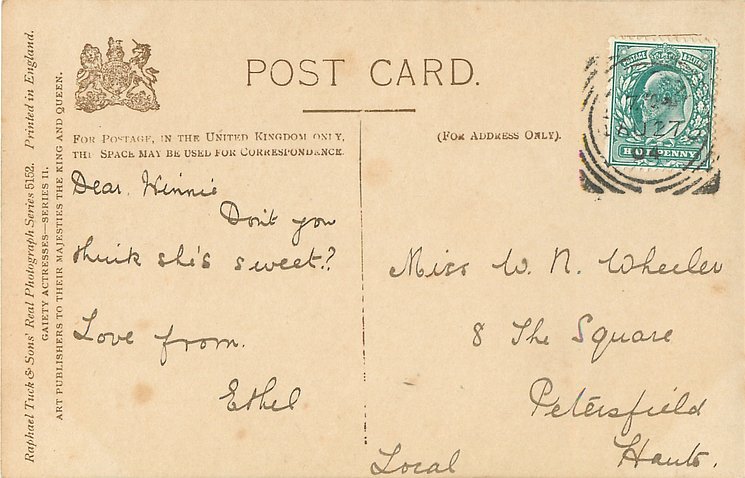 Raphael Tuck & Sons' Real Photograph Series 5152. Printed in England.
GAIETY ACTRESSES—SERIES II.
ART PUBLISHERS TO THEIR MAJESTIES THE KING AND QUEEN.
POST CARD.
FOR POSTAGE, IN THE UNITED KINGDOM ONLY,
THIS SPACE MAY BE USED FOR CORRESPONDENCE.
(FOR ADDRESS ONLY).
Dear Winnie
Don't you
think she's sweet??
Love from.
Ethel
Miss W. N. Wheeler
8 The Square
Petersfield
Hants.
Local
POSTAGE REVENUE
HALFPENNY
JY 27
04